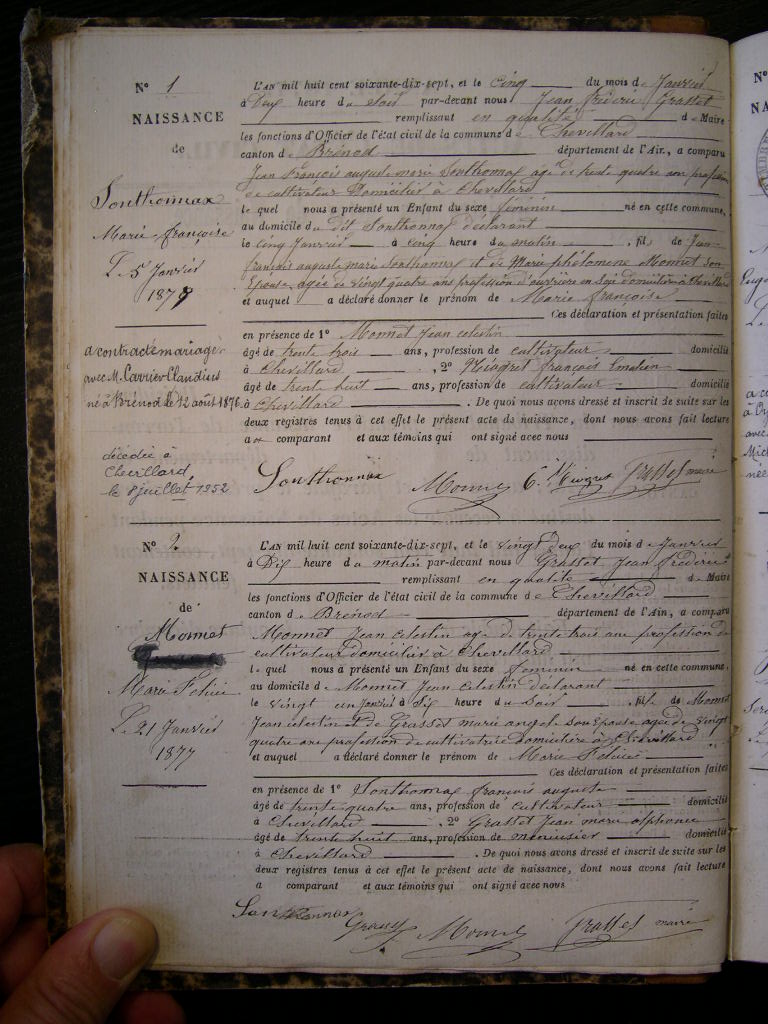 N° 1
NAISSANCE
de
Sonthonnax
Marie françoise
Le 5 Janvier
1877
a contracté mariage
avec M. Carrier Claudius
né à Brénod le 12 août 1876
décédée à
Chevillard
le 8 juillet 1952
L'AN mil huit cent soixante-dix-sept, et le cinq du mois de Janvier
à Deux heure du soir par-devant nous Jean frédéric Grasset
remplissant en qualité de Maire
les fonctions d'Officier de l'état civil de la commune de Chevillard
canton de Brénod département de l'Ain, a comparu
Jean François auguste marie Sonthonnax agé de trente quatre ans profession
de cultivateur Domicilié à Chevillard
lequel nous a présenté un Enfant du sexe féminin né en cette commune,
au domicile du dit Sonthonnax déclarant
le cinq Janvier à cinq heure du matin , fille de Jean
françois auguste marie Sonthonnax et de Marie philomene Monnet son
Epouse, agée de vingt quatre ans profession d'ouvrière en Soie domiciliée à Chevillard
et auquel a déclaré donner le prénom de Marie françoise
Ces déclaration et présentation faites
en présence de 1° Monnet Jean celestin
âgé de trente trois ans, profession de cultivateur domicilié
à Chevillard , 2° françois
âgé de trente huit ans, profession de cultivateur domicilié
à Chevillard . De quoi nous avons dressé et inscrit de suite sur les
deux registres tenus à cet effet le présent acte de naissance, dont nous avons fait lecture
au comparant et aux témoins qui ont signé avec nous
Sonthonnax Monnet Grasset maire
N° 2
NAISSANCE
de
Monnet
Marie Félicie
Le 21 Janvier
1877
L'AN mil huit cent soixante-dix-sept, et le vingt Deux du mois de Janvier
à Dix heure du matin par-devant nous Grasset Jean frédéric
remplissant en qualité de Maire
les fonctions d'Officier de l'état civil de la commune de Chevillard
canton de Brénod département de l'Ain, a comparu
Monnet Jean celestin agé de trente trois ans profession de
cultivateur domicilié à Chevillard
lequel nous a présenté un Enfant du sexe féminin né en cette commune,
au domicile de Monnet Jean celestin déclarant
le vingt un Janvier à Dix heure du Soir , fille de Monnet
Jean celestin et de Grasset marie angele son Epouse agée de vingt
quatre ans profession de cultivatrice domiciliée à Chevillard
et auquel a déclaré donner le prénom de Marie Félicie
Ces déclaration et présentation faites
en présence de 1° Sonthonnax francois auguste
âgé de trente quatre ans, profession de cultivateur domicilié
à Chevillard , 2° Grasset Jean marie alphonse
âgé de trente huit ans, profession de menuisier domicilié
à Chevillard . De quoi nous avons dressé et inscrit de suite sur les
deux registres tenus à cet effet le présent acte de naissance, dont nous avons fait lecture
a comparant et aux témoins qui ont signé avec nous
Sonthonnax Grasset Monnet Grasset maire